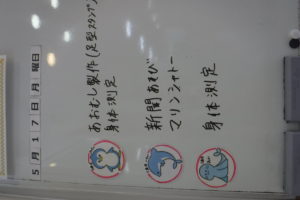 5月17日月曜日
あおむし製作(足型スタンプ)
身体測定
新聞あそび
マリンシャトー
身体測定